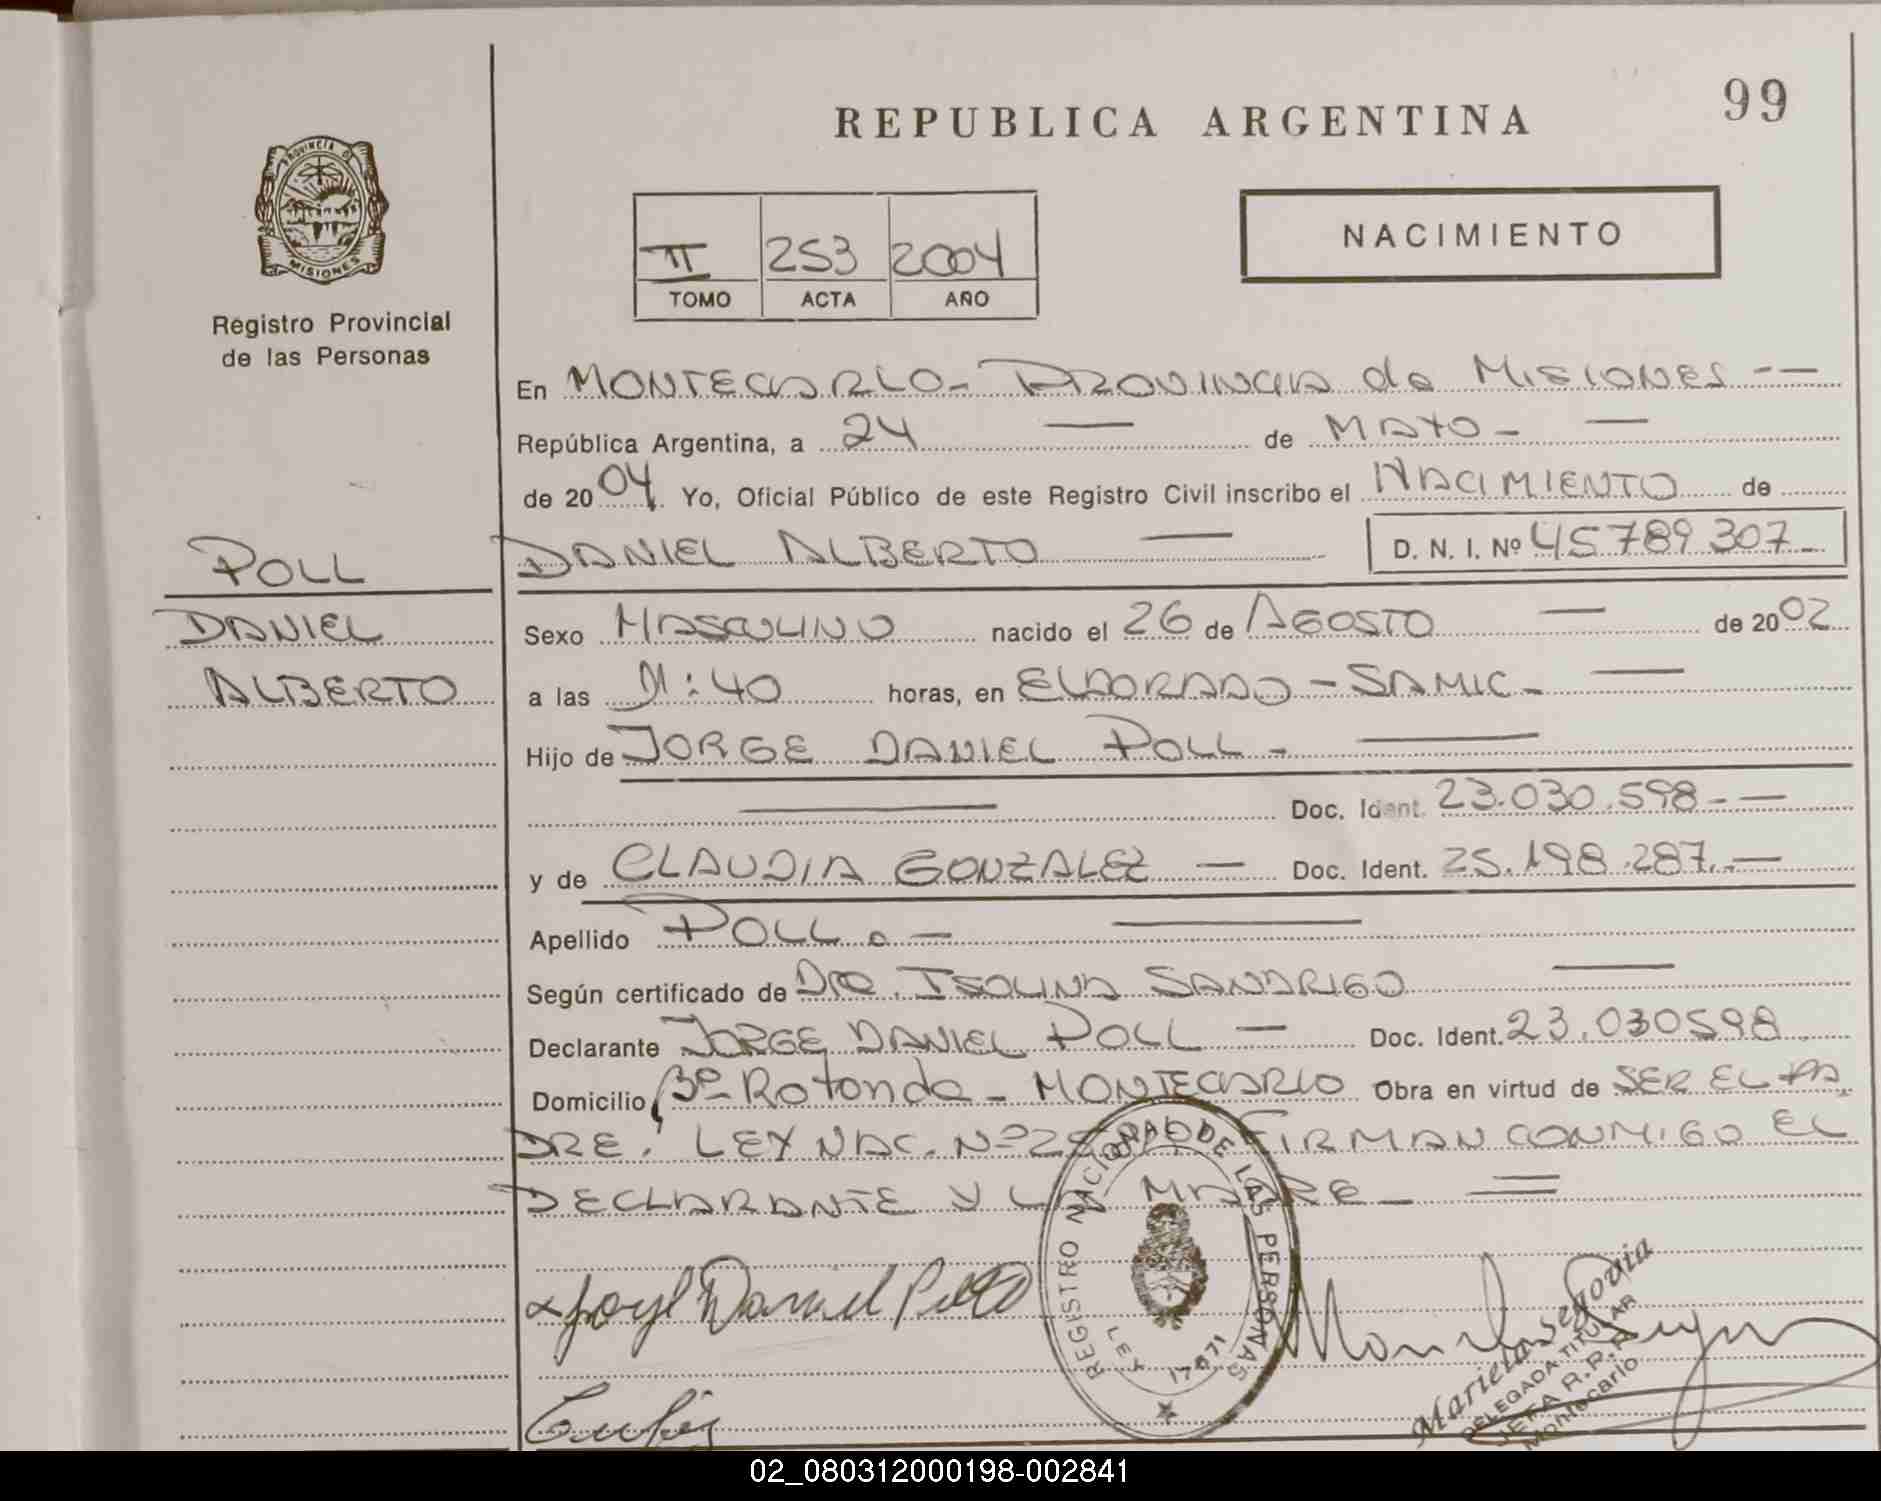 REPUBLICA ARGENTINA
99
PROVINCIA DE
MISIONES
Registro Provincial
de las Personas
II 253 2004
TOMO ACTA AÑO
NACIMIENTO
En MONTECARLO - PROVINCIA de MISIONES --
República Argentina, a 24 — de MAYO - —
de 2004. Yo, Oficial Público de este Registro Civil inscribo el NACIMIENTO de
DANIEL ALBERTO — D. N. I. Nº 45.789.307 -
POLL
DANIEL
ALBERTO
Sexo MASCULINO nacido el 26 de AGOSTO — de 2002
a las :40 horas, en ELDORADO - SAMIC - —
Hijo de JORGE DANIEL POLL - —
— Doc. Ident. 23.030.598 - —
y de CLAUDIA GONZALEZ — Doc. Ident. 25.198.287.- —
Apellido POLL . — —
Según certificado de DRA. ISOLINA SANDRIGO —
Declarante JORGE DANIEL POLL — Doc. Ident. 23.030598
Domicilio Bº Rotonda - MONTECARLO Obra en virtud de SER EL PA
DRE. LEY NAC. Nº FIRMAN CONMIGO EL
DECLARANTE Y LA MADRE - =
REGISTRO NACIONAL DE LAS PERSONAS
LEY 17671
Daniel
Mariela Segovia
DELEGADA TITULAR
JEFA R.P.P.
Montecarlo
02_080312000198-002841